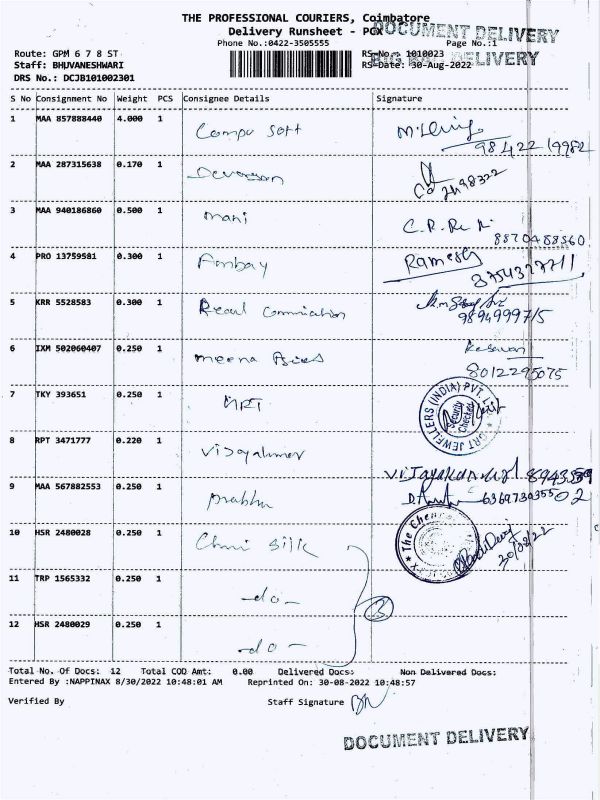 THE PROFESSIONAL COURIERS, Coimbatore
Delivery Runsheet - POX
DOCUMENT DELIVERY
Phone No.:0422-3505555
Page No.:1
Route: GPM 6 7 8 ST
RS No.: 1010023
DELIVERY
Staff: BHUVANESHWARI
RS Date: 30-Aug-2022
DRS No.: DCJB101002301
S No Consignment No Weight PCS Consignee Details Signature
1 MAA 857888440 4.000 1 Compu Soft
98422 19982
2 MAA 287315638 0.170 1
3 MAA 940186860 0.500 1 mani
8870488560
4 PRO 13759581 0.300 1 Ramesh
8754327711
5 KRR 5528583 0.300 1
9894999715
6 IXM 502060407 0.250 1 meena Kesavan
8012295075
7 TKY 393651 0.250 1 MRT
GRT JEWELLERS (INDIA) PVT. LTD
Security Checked
8 RPT 3471777 0.220 1
9 MAA 567882553 0.250 1 prabhu
10 HSR 2480028 0.250 1 Chennai Silk
The Chennai
30/08/22
11 TRP 1565332 0.250 1 -do-
3
12 HSR 2480029 0.250 1 -do-
Total No. Of Docs: 12 Total COD Amt: 0.00 Delivered Docs: Non Delivered Docs:
Entered By :NAPPINAX 8/30/2022 10:48:01 AM Reprinted On: 30-08-2022 10:48:57
Verified By Staff Signature
DOCUMENT DELIVERY